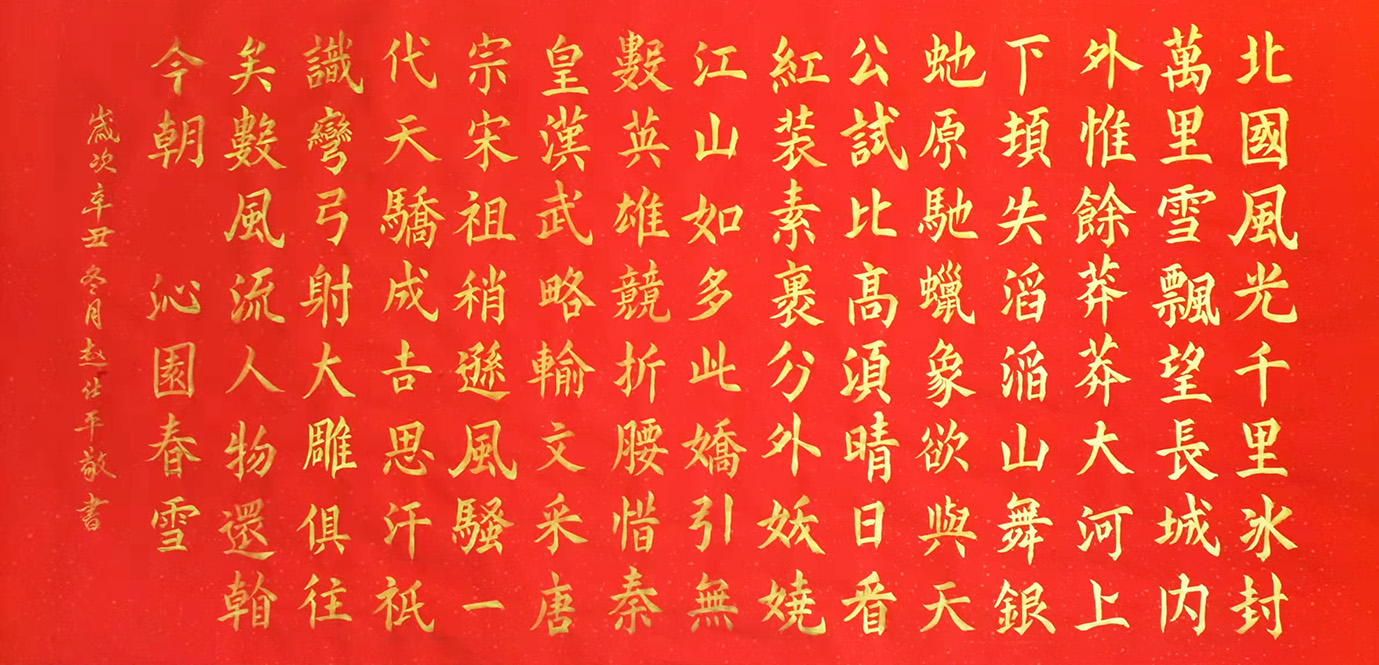 北國風光千里氷封
萬里雪飄望長城内
外惟餘莽莽大河上
下頓失滔滔山舞銀
虵原馳蠟象欲與天
公試比高須晴日看
紅装素裹分外妖嬈
江山如多此嬌引無
數英雄競折腰惜秦
皇漢武略輸文采唐
宗宋祖稍遜風騷一
代天驕成吉思汗祇
識彎弓射大雕俱往
矣數風流人物還看
今朝 沁園春雪
歲次辛丑冬月赵仕平敬書